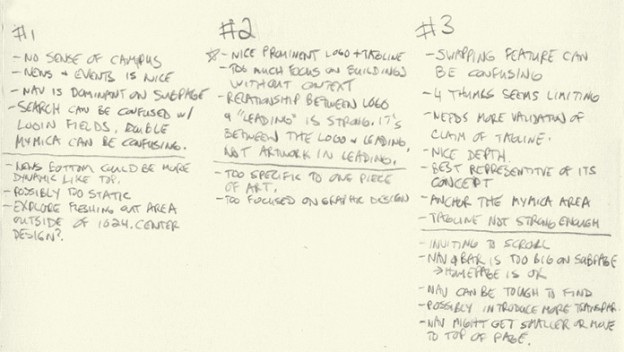 #1
- NO SENSE OF CAMPUS
- NEWS + EVENTS IS NICE
- NAV IS DOMINANT ON SUBPAGE
- SEARCH CAN BE CONFUSED W/
LOGIN FIELDS, DOUBLE
MYMICA CAN BE CONFUSING.
- NEWS BOTTOM COULD BE MORE
DYNAMIC LIKE TOP.
- POSSIBLY TOO STATIC
- EXPLORE FLESHING OUT AREA
OUTSIDE OF 1024. CENTER
DESIGN?
#2
☆ - NICE PROMINENT LOGO + TAGLINE
- TOO MUCH FOCUS ON BUILDINGS
WITHOUT CONTEXT
- RELATIONSHIP BETWEEN LOGO
& "LEADING" IS STRONG. IT'S
BETWEEN THE LOGO & LEADING,
NOT ARTWORK IN LEADING.
- TOO SPECIFIC TO ONE PIECE
OF ART.
- TOO FOCUSED ON GRAPHIC DESIGN
#3
- SWAPPING FEATURE CAN
BE CONFUSING
- 4 THUMBS SEEMS LIMITING
- NEEDS MORE VALIDATION OF
CLAIM OF TAGLINE.
- NICE DEPTH.
- BEST REPRESENTITIVE OF ITS
CONCEPT
- ANCHOR THE MYMICA AREA
- TAGLINE NOT STRONG ENOUGH
- INVITING TO SCROLL
- NAV BAR IS TOO BIG ON SUBPAGE
→ HOMEPAGE IS OK
- NAV CAN BE TOUGH TO FIND
- POSSIBLY INTRODUCE MORE TRANSPAR.
- NAV MIGHT GET SMALLER OR MOVE
TO TOP OF PAGE.